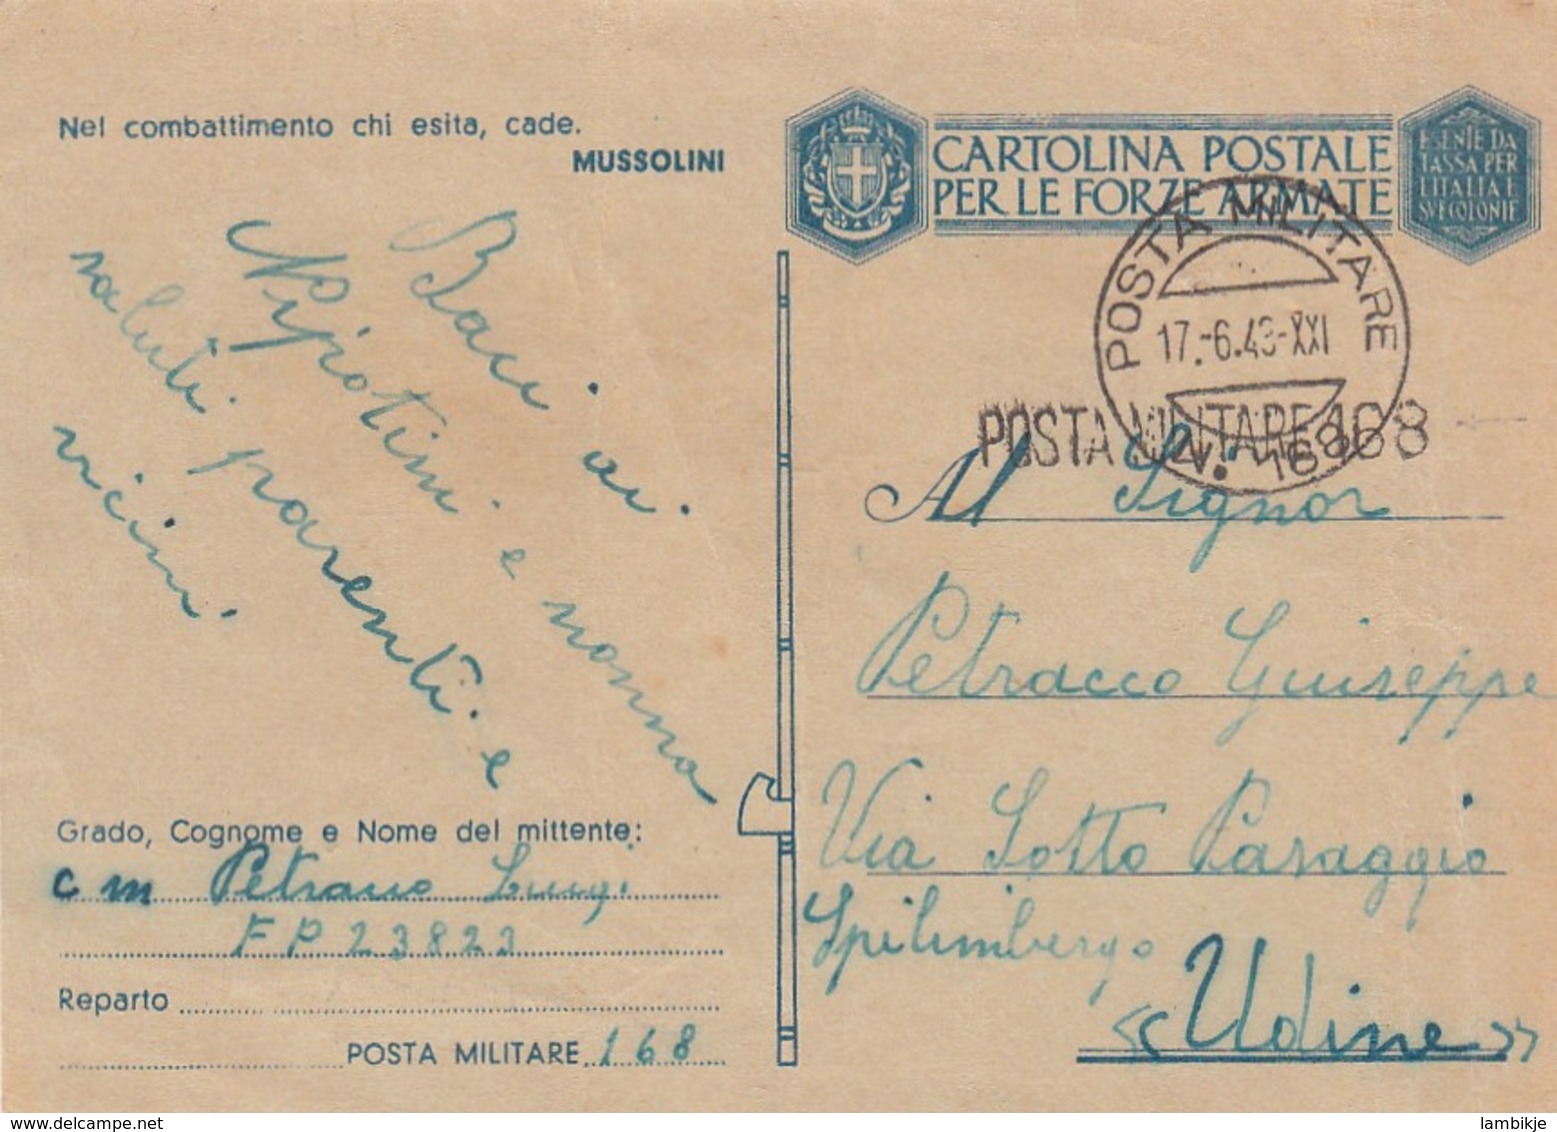 Nel combattimento chi esita, cade.
MUSSOLINI
Baci ai
Nipotini e nonna
saluti parenti e
vicini.
Grado, Cognome e Nome del mittente:
c m Petracco Luigi
F P 23823
Reparto
POSTA MILITARE 168
CARTOLINA POSTALE
PER LE FORZE ARMATE
ESENTE DA
TASSA PER
L'ITALIA E
SVE COLONIE
POSTA MILITARE
17.-6.43-XXI
N. 168
POSTA MILITARE 168
Al Signor
Petracco Giuseppe
Via Sotto Paraggio
Spilimbergo
«Udine»
delcampe.net
lambikje